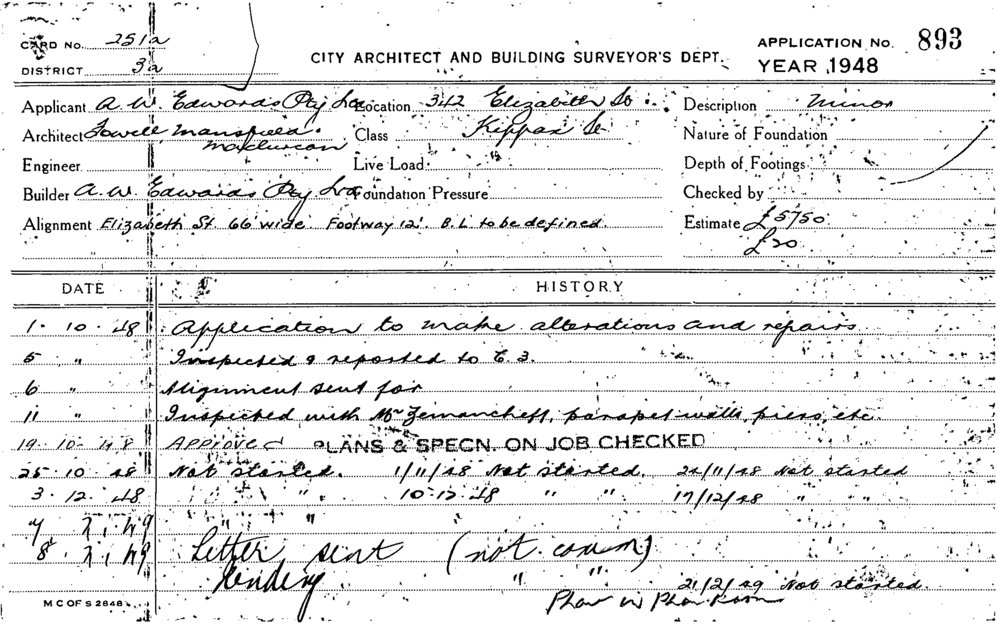 CARD No. 251a
DISTRICT 3a
CITY ARCHITECT AND BUILDING SURVEYOR'S DEPT.
APPLICATION No. 893
YEAR 1948
Applicant A. W. Edwards Pty Ltd Location 342 Elizabeth St. Description Minor
Architect Fowell Mansfield Maclurcan Class Kippax St Nature of Foundation
Engineer Live Load Depth of Footings
Builder A. W. Edwards Pty Ltd Foundation Pressure Checked by
Alignment Elizabeth St. 66' wide. Footway 12'. B.L. to be defined. Estimate £5750
£20
DATE HISTORY
1. 10. 48 Application to make alterations and repairs
5 " Inspected & reported to C.3.
6 " Alignment sent for
11 " Inspected with Mr Zemancheff, parapet walls, piers, etc.
19. 10. 48 APPROVED PLANS & SPECN. ON JOB CHECKED
25. 10. 48 Not started. 1/11/48 Not started. 24/11/48 Not started
3. 12. 48 " " 10-12-48 " " 17/12/48 " "
" "
Letter sent (not comm)
" " 21/2/49 Not started.
M C OF S 2648